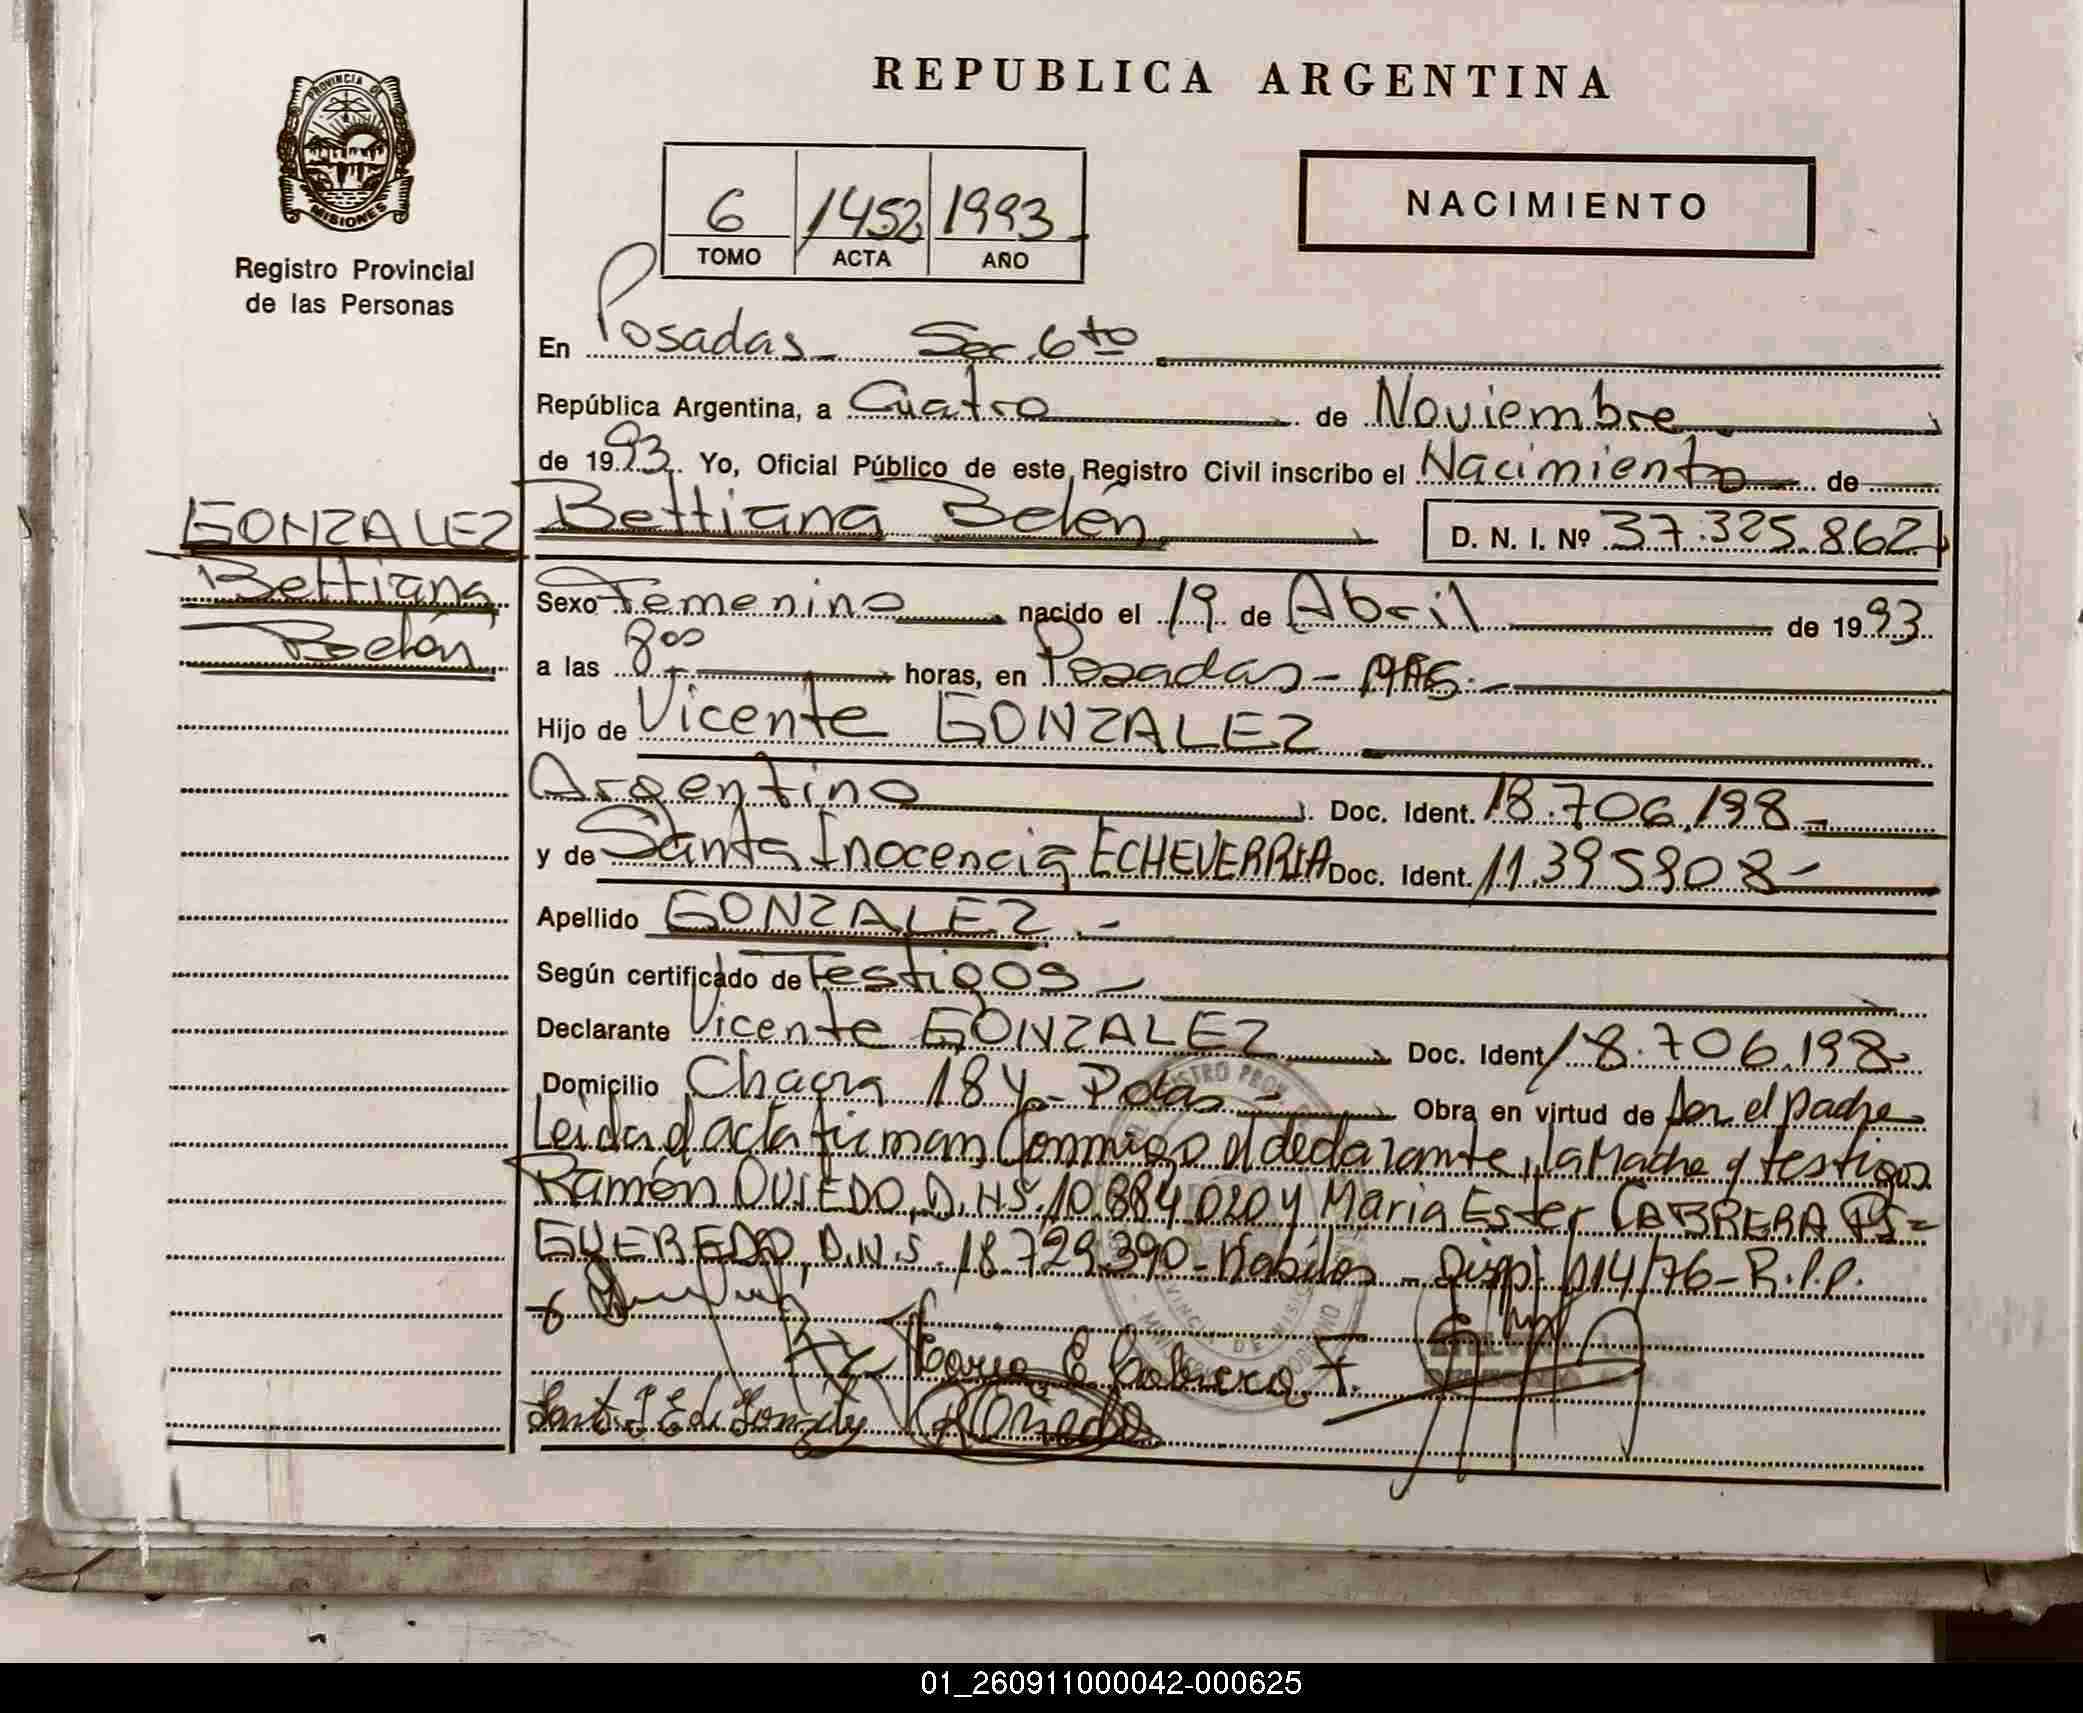 PROVINCIA DE
MISIONES
Registro Provincial
de las Personas
REPUBLICA ARGENTINA
6 1452 1993
TOMO ACTA AÑO
NACIMIENTO
En Posadas - Sec. 6to
República Argentina, a Cuatro de Noviembre
de 1993. Yo, Oficial Público de este Registro Civil inscribo el Nacimiento de
GONZALEZ Bettiana Belén D. N. I. Nº 37.325.862
Bettiana
Belén
Sexo Femenino nacido el 19 de Abril de 1993
a las 8 00 horas, en Posadas -
Hijo de Vicente GONZALEZ
Argentino Doc. Ident. 18.706.198-
y de Santa Inocencia ECHEVERRIA Doc. Ident. 11.395908-
Apellido GONZALEZ.-
Según certificado de Testigos -
Declarante Vicente GONZALEZ Doc. Ident 18.706.198-
Domicilio Chacra 184- Pdas - Obra en virtud de Ser el padre
Leida el acta firman Conmigo el declarante, la Madre y testigos
Ramón OVIEDO, D.N.I. 10.884.020 y Maria Ester CABRERA
D.N.I. 18.729.390- habiles - Disp. 114/76- R.P.P.
Maria E Cabrera F.
R Oviedo
01_260911000042-000625